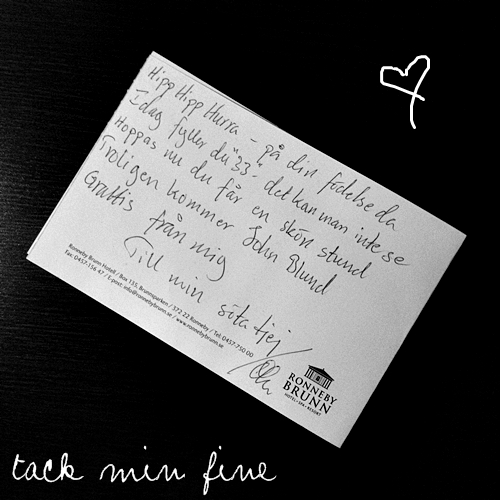 Hipp Hipp Hurra - på din födelseda
Idag fyller du "33" - det kan man inte se
Hoppas nu du får en skön stund
Troligen kommer John Blund
Grattis från mig
Till min söta tjej
Ronneby Brunn Hotell / Box 155, Brunnsparken / 372 22 Ronneby / Tel: 0457-750 00
Fax: 0457-156 47 / E-post: info@ronnebybrunn.se / www.ronnebybrunn.se
RONNEBY
BRUNN
HOTELL • SPA • RESORT
tack min fine